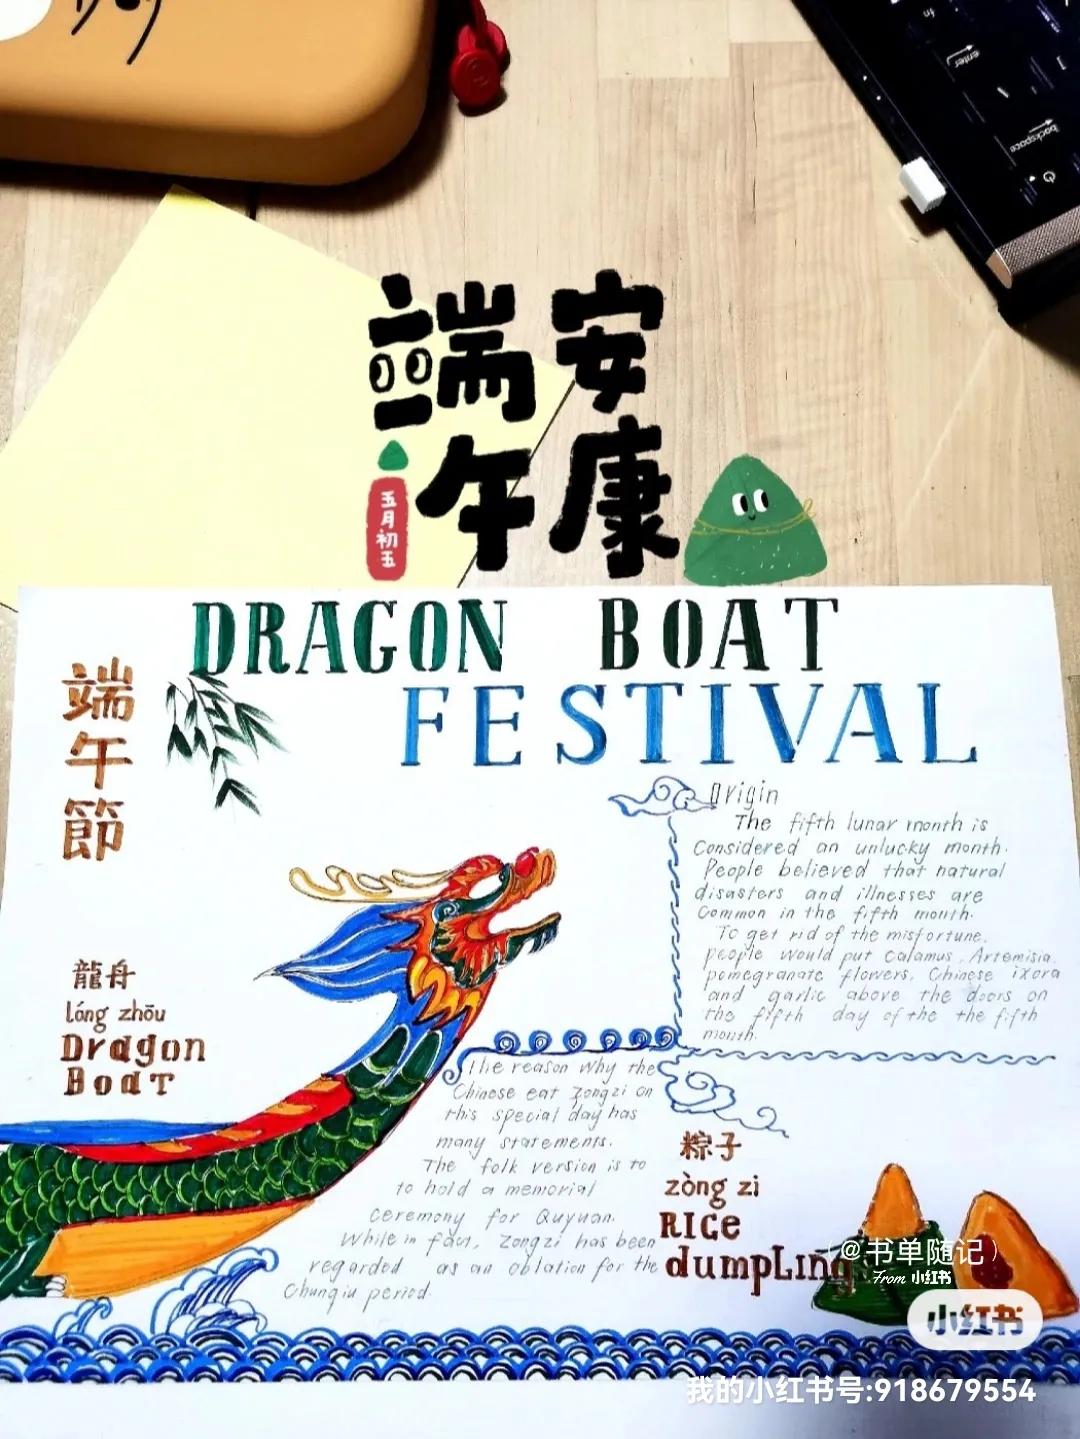 fn
enter
backspace
端午
安康
五月初五
DRAGON BOAT
FESTIVAL
端午節
Origin
The fifth lunar month is
Considered an unlucky month.
People believed that natural
disasters and illnesses are
Common in the fifth month.
To get rid of the misfortune,
people would put calamus, Artemisia,
pomegranate flowers, Chinese ixora
and garlic above the doors on
the fifth day of the the fifth
month.
龍舟
lóng zhōu
Dragon
Boat
The reason why the
Chinese eat zongzi on
this special day has
many statements.
The folk version is to
to hold a memorial
ceremony for Quyuan.
While in fact, zongzi has been
regarded as an oblation for the
Chunqiu period.
粽子
zòng zi
RICe
dumpLing
(@书单随记)
From 小红书
小红书
我的小红书号:918679554